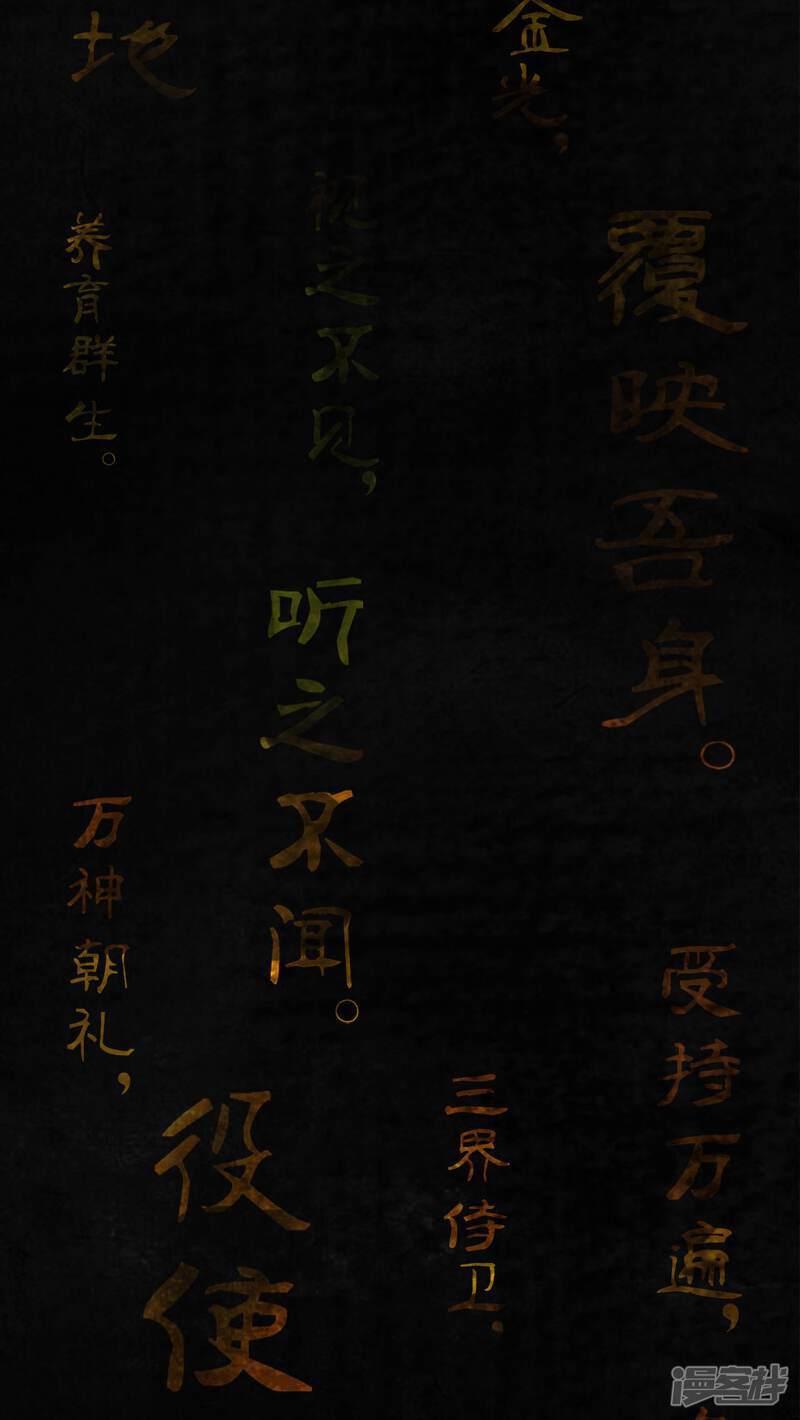 金光，
覆映吾身。
视之不见，
听之不闻。
地
养育群生。
受持万遍，
三界侍卫，
万神朝礼，
役使
漫客栈